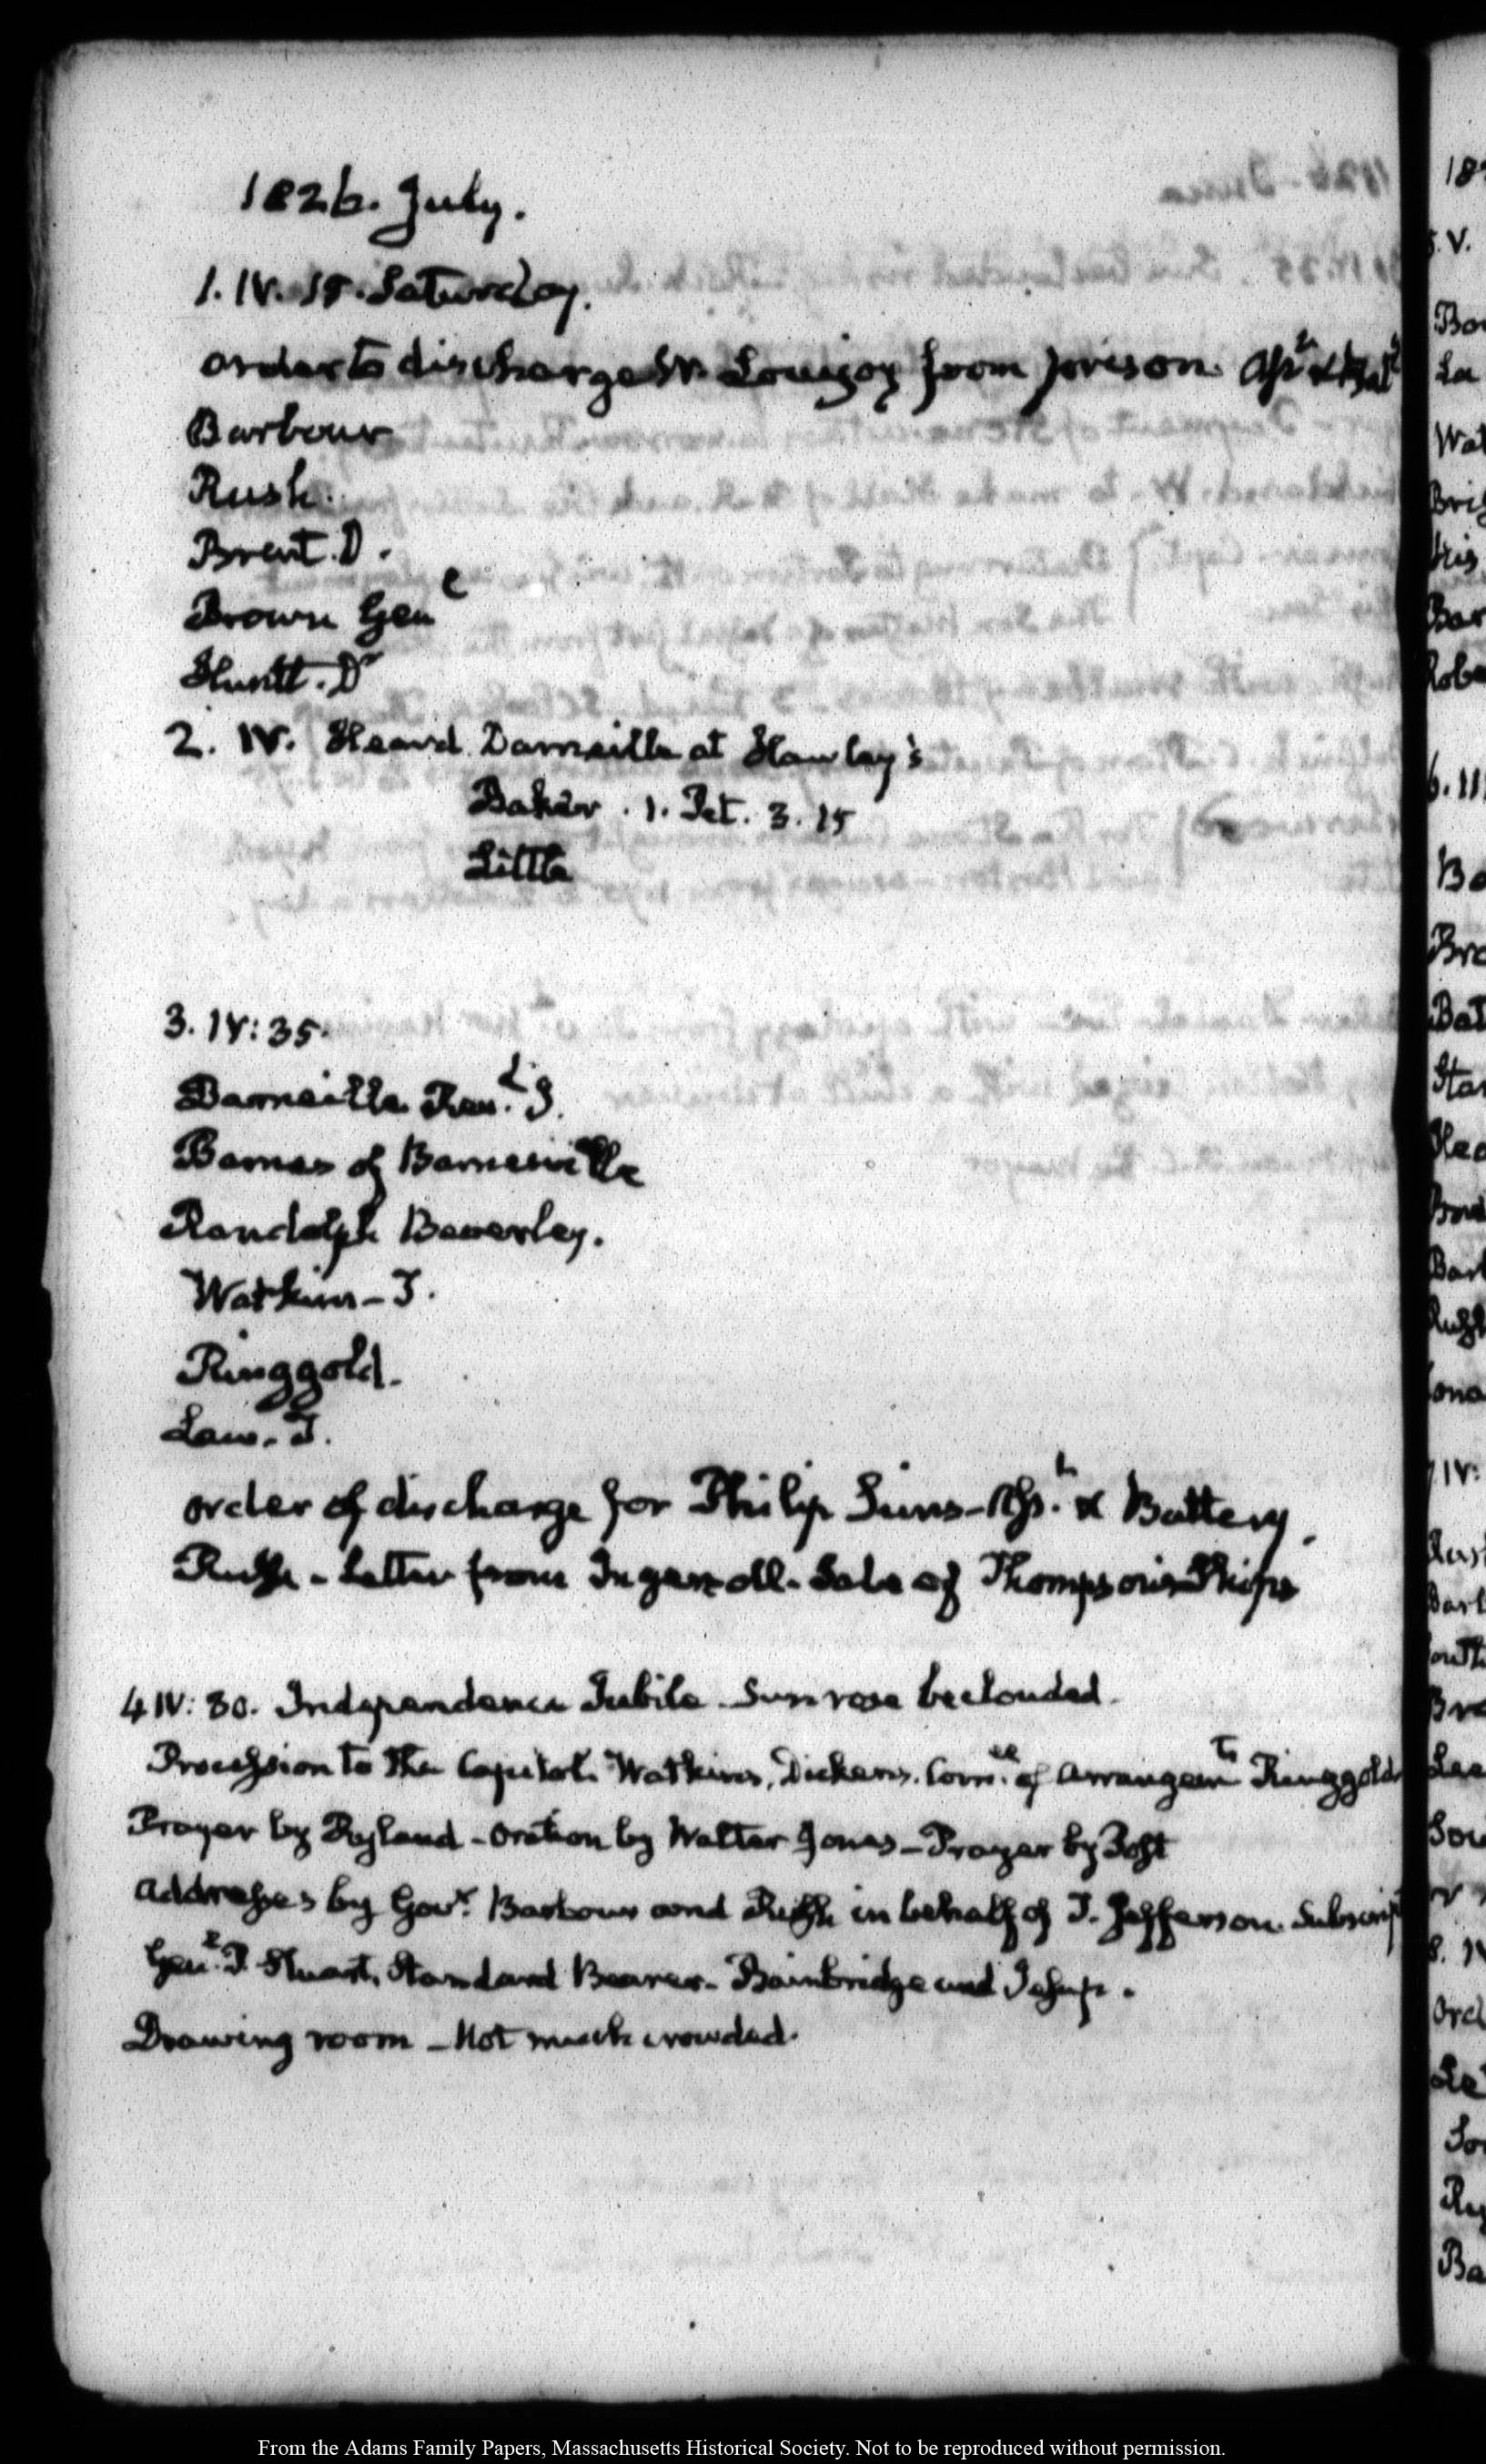 1826. July.
1. IV. 15. Saturday.
order to discharge W. Lovejoy from prison. Ass.t & Bat.y
Barbour
Rush.
Brent. D.
Brown Gen.l
Huntt. Dr
2. IV. Heard Darneille at Hawley's
Baker. 1. Pet. 3. 15
Little
3. IV: 35.
Darneille Rev.d I.
Barnes of Barnesville
Randolph Beverley.
Watkins - T.
Ringgold.
Law. T.
order of discharge for Philip Sims - Ass.t & Battery.
Rush - Letter from Ingersoll. Sale of Thompson's Ships
4 IV: 30. Independence Jubile. Sun rose beclouded.
Procession to the Capitol. Watkins, Dickens. Com.ee of Arrangem.ts Ringgold
Prayer by Ryland - Oration by Walter Jones - Prayer by Post
Addresses by Gov.r Barbour and Rush in behalf of T. Jefferson.
Gen.l P. Stuart, Standard Bearer - Bainbridge and Jesup.
Drawing room - Not much crowded.
From the Adams Family Papers, Massachusetts Historical Society. Not to be reproduced without permission.